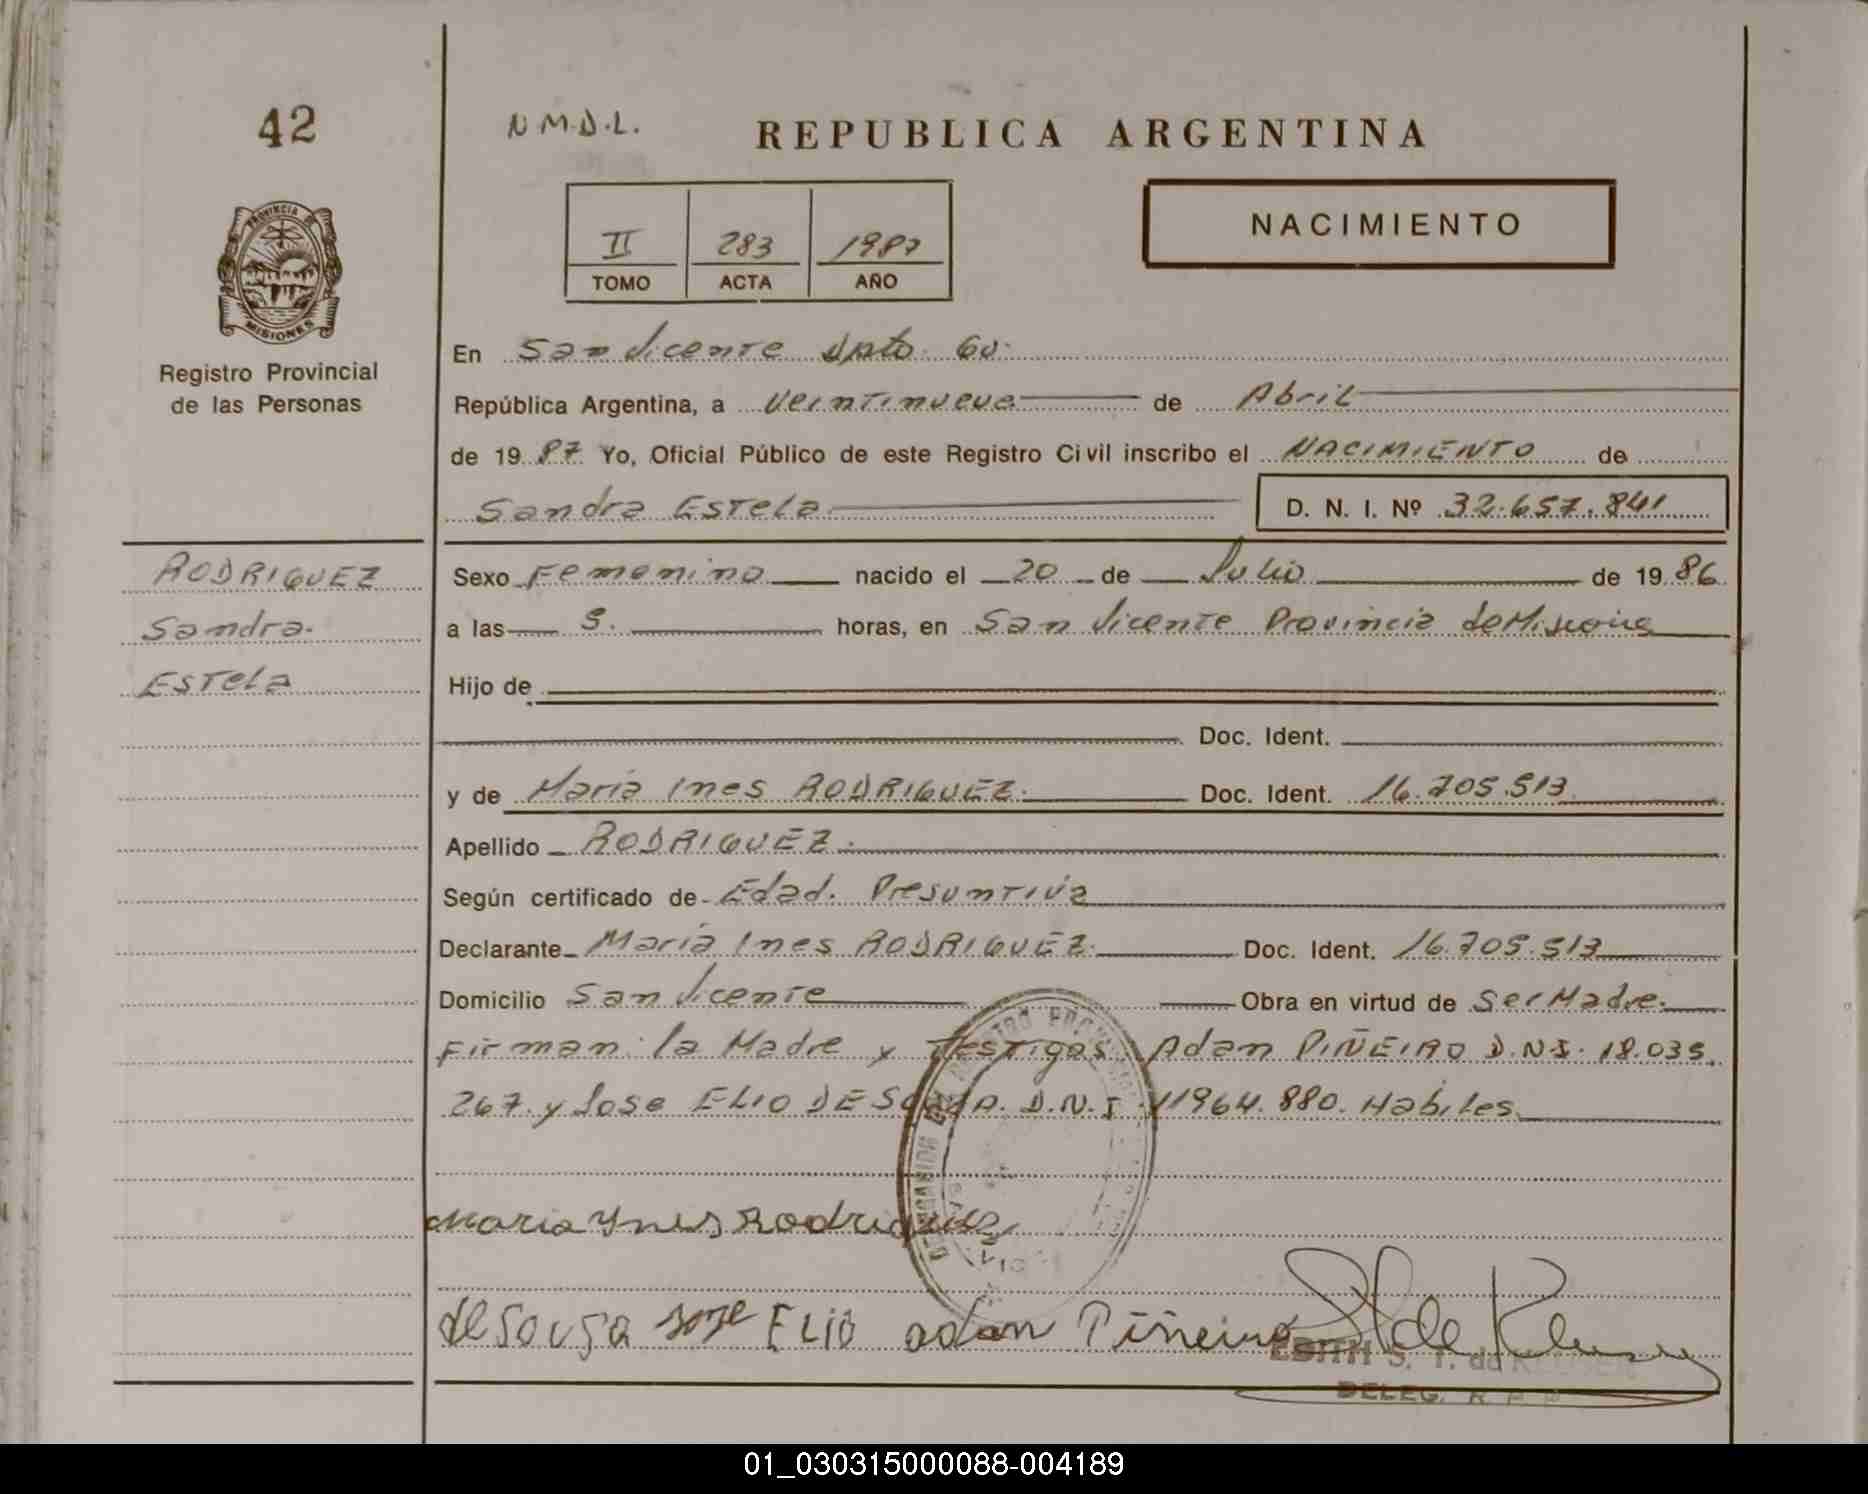 42
N.M.D.L.
REPUBLICA ARGENTINA
PROVINCIA DE
MISIONES
Registro Provincial
de las Personas
II 283 1987
TOMO ACTA AÑO
NACIMIENTO
En San Vicente Dpto. Gú.
República Argentina, a Veintinueve de Abril
de 1987 Yo, Oficial Público de este Registro Civil inscribo el NACIMIENTO de
Sandra Estela D. N. I. Nº 32.657.841
RODRIGUEZ
Sandra
Estela
Sexo Femenino nacido el 20 de Julio de 1986
a las 5. horas, en San Vicente Provincia de Misiones
Hijo de
Doc. Ident.
y de María Ines RODRIGUEZ. Doc. Ident. 16.705.513
Apellido RODRIGUEZ.
Según certificado de Edad. Presuntiva
Declarante María Ines RODRIGUEZ. Doc. Ident. 16.705.513
Domicilio San Vicente Obra en virtud de Ser Madre.
Firman: la Madre y Testigos Adan PIÑEIRO D.N.I. 18.035.
267. y Jose ELIO DE SOUZA. D.N.I. 11964.880. Habiles
Maria Ynes Rodriguez
de Souza Jose Elio adan Piñeiro
EDITH S. T. de
DELEG. R P P
01_030315000088-004189